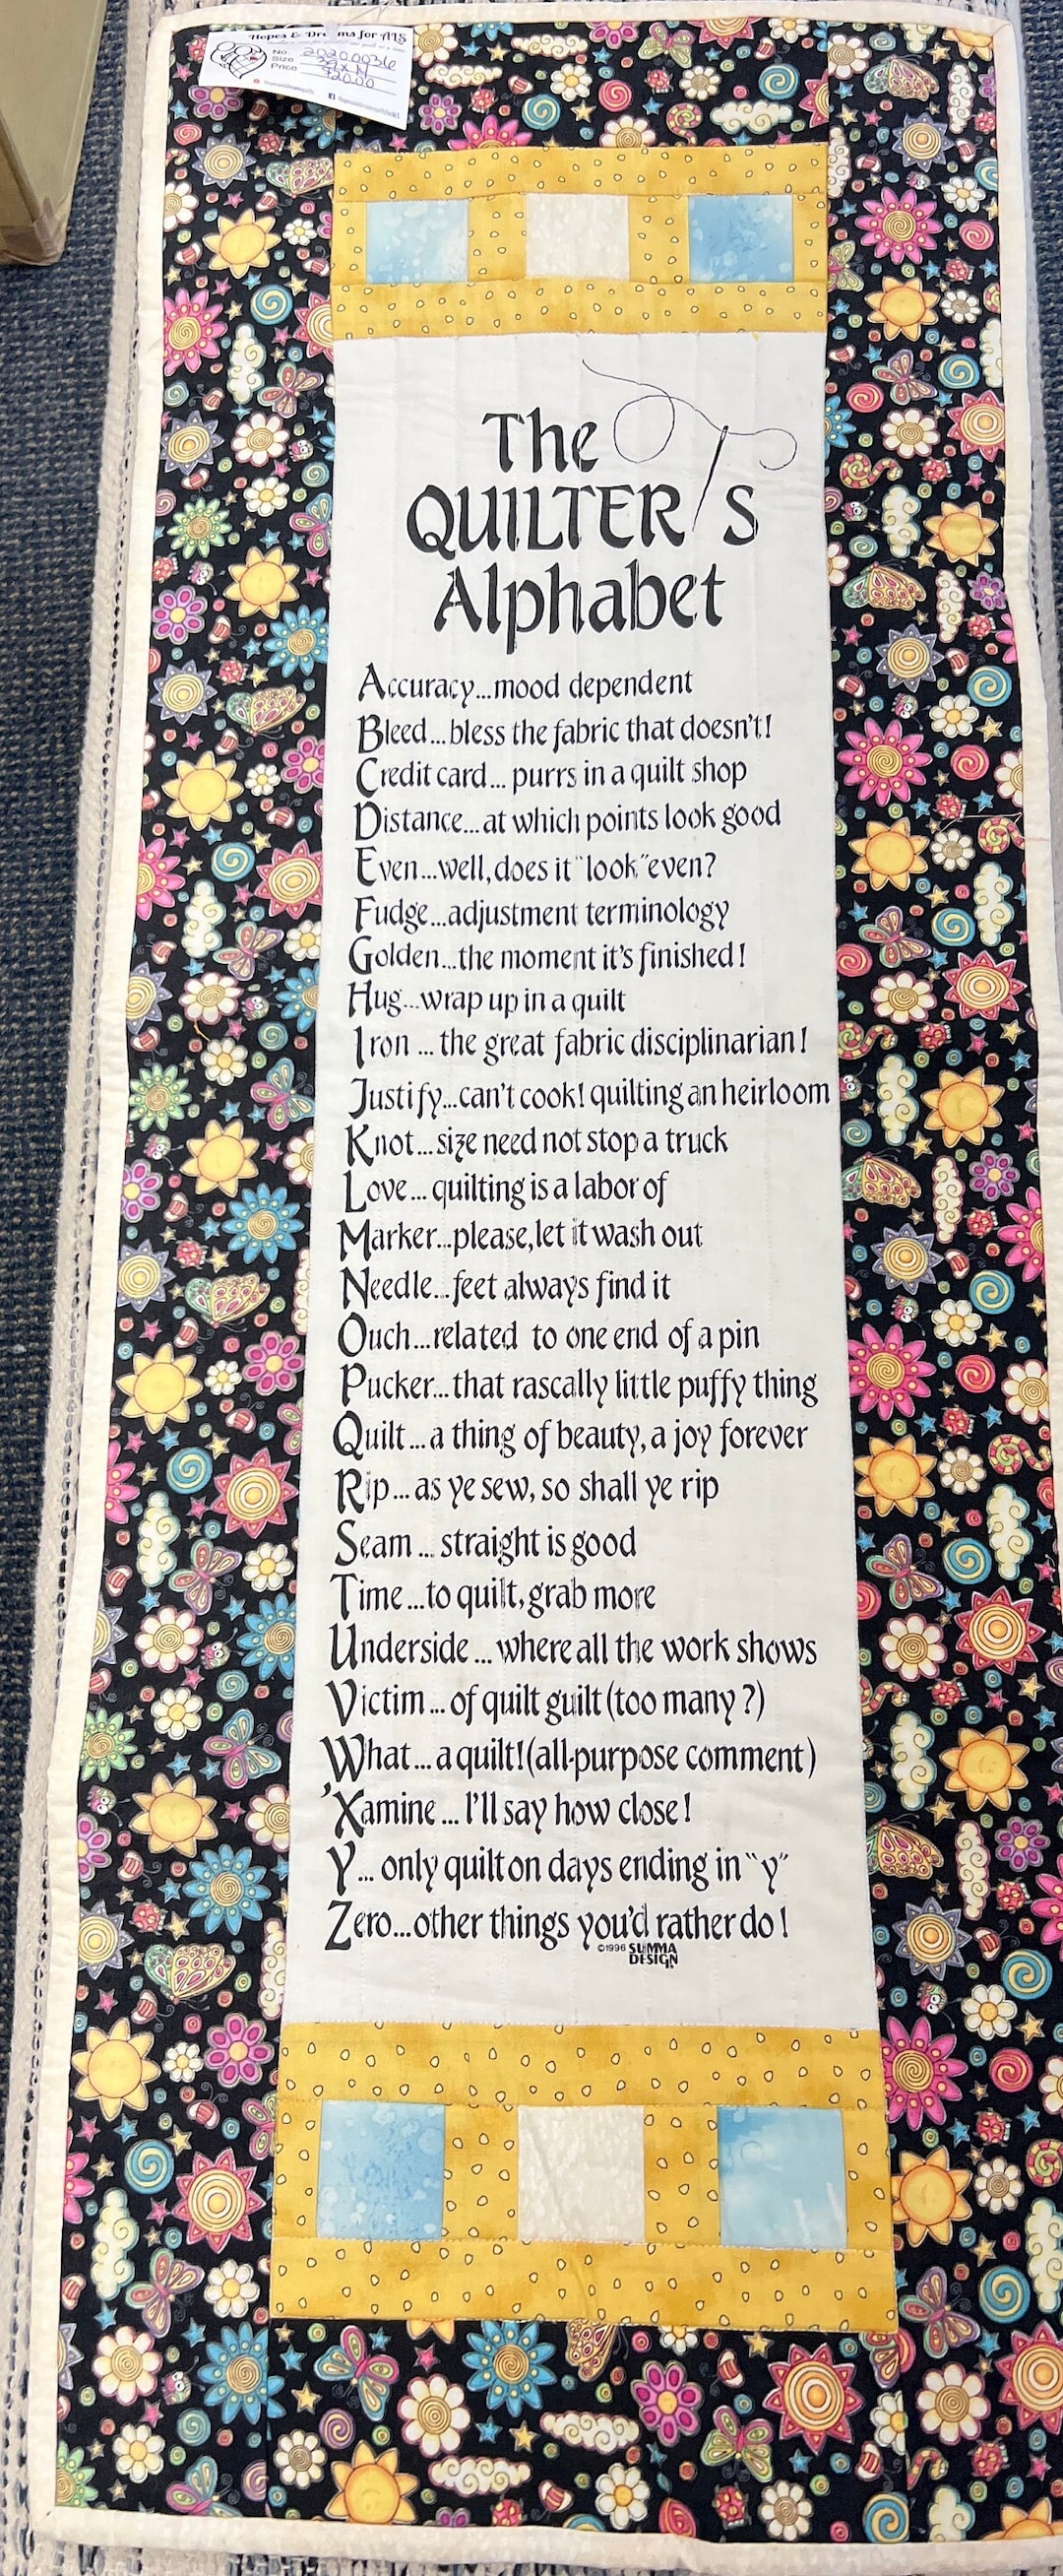 Hopes & Dreams for ALS
No. 20200036
Size
Price $20.00
The
QUILTER'S
Alphabet
Accuracy...mood dependent
Bleed...bless the fabric that doesn't!
Credit card... purrs in a quilt shop
Distance...at which points look good
Even...well, does it "look" even?
Fudge...adjustment terminology
Golden...the moment it's finished!
Hug...wrap up in a quilt
Iron ... the great fabric disciplinarian!
Justify...can't cook! quilting an heirloom
Knot...size need not stop a truck
Love... quilting is a labor of
Marker...please, let it wash out
Needle...feet always find it
Ouch...related to one end of a pin
Pucker...that rascally little puffy thing
Quilt...a thing of beauty, a joy forever
Rip...as ye sew, so shall ye rip
Seam ... straight is good
Time...to quilt, grab more
Underside ... where all the work shows
Victim ... of quilt guilt (too many?)
What ... a quilt! (all-purpose comment)
'Xamine ... I'll say how close!
Y... only quilt on days ending in "y"
Zero...other things you'd rather do!
©1996 SUMMA
DESIGN